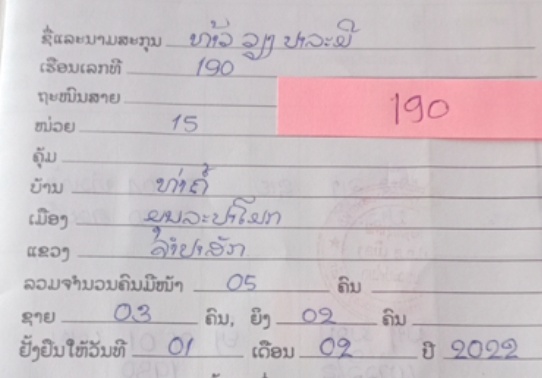 ຊື່ແລະນາມສະກຸນ ທ້າວ ວຽງ ປາລະມີ
ເຮືອນເລກທີ 190
ຖະໜົນສາຍ
190
ໜ່ວຍ 15
ຄຸ້ມ
ບ້ານ ທ່າຄໍ້
ເມືອງ
ແຂວງ ຈຳປາສັກ
ລວມຈຳນວນຄົນມີໜ້າ 05 ຄົນ
ຊາຍ 03 ຄົນ, ຍິງ 02 ຄົນ
ຢັ້ງຢືນໃຫ້ວັນທີ 01 ເດືອນ 02 ປີ 2022